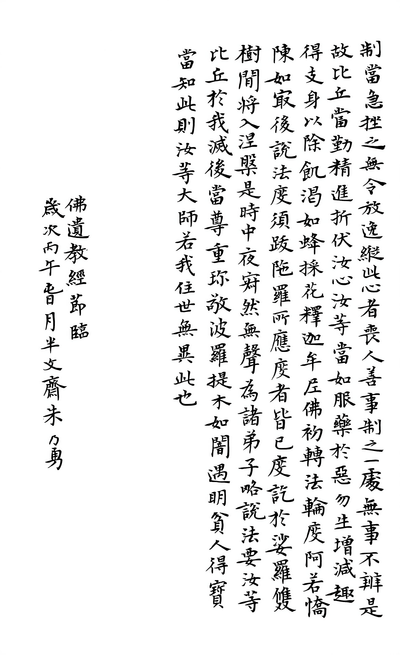 制當急挫之無令放逸縱此心者喪人善事制之一處無事不辦是
故比丘當勤精進折伏汝心汝等當如服藥於惡勿生增減趣
得支身以除飢渴如蜂採花釋迦牟尼佛初轉法輪度阿若憍
陳如最後說法度須跋陁羅所應度者皆已度訖於娑羅雙
樹間將入涅槃是時中夜寂然無聲為諸弟子略說法要汝等
比丘於我滅後當尊重珎敬波羅提木如闇遇明貧人得寶
當知此則汝等大師若我住世無異此也
佛遺教經節臨
歲次丙午春月半文齋朱乃勇